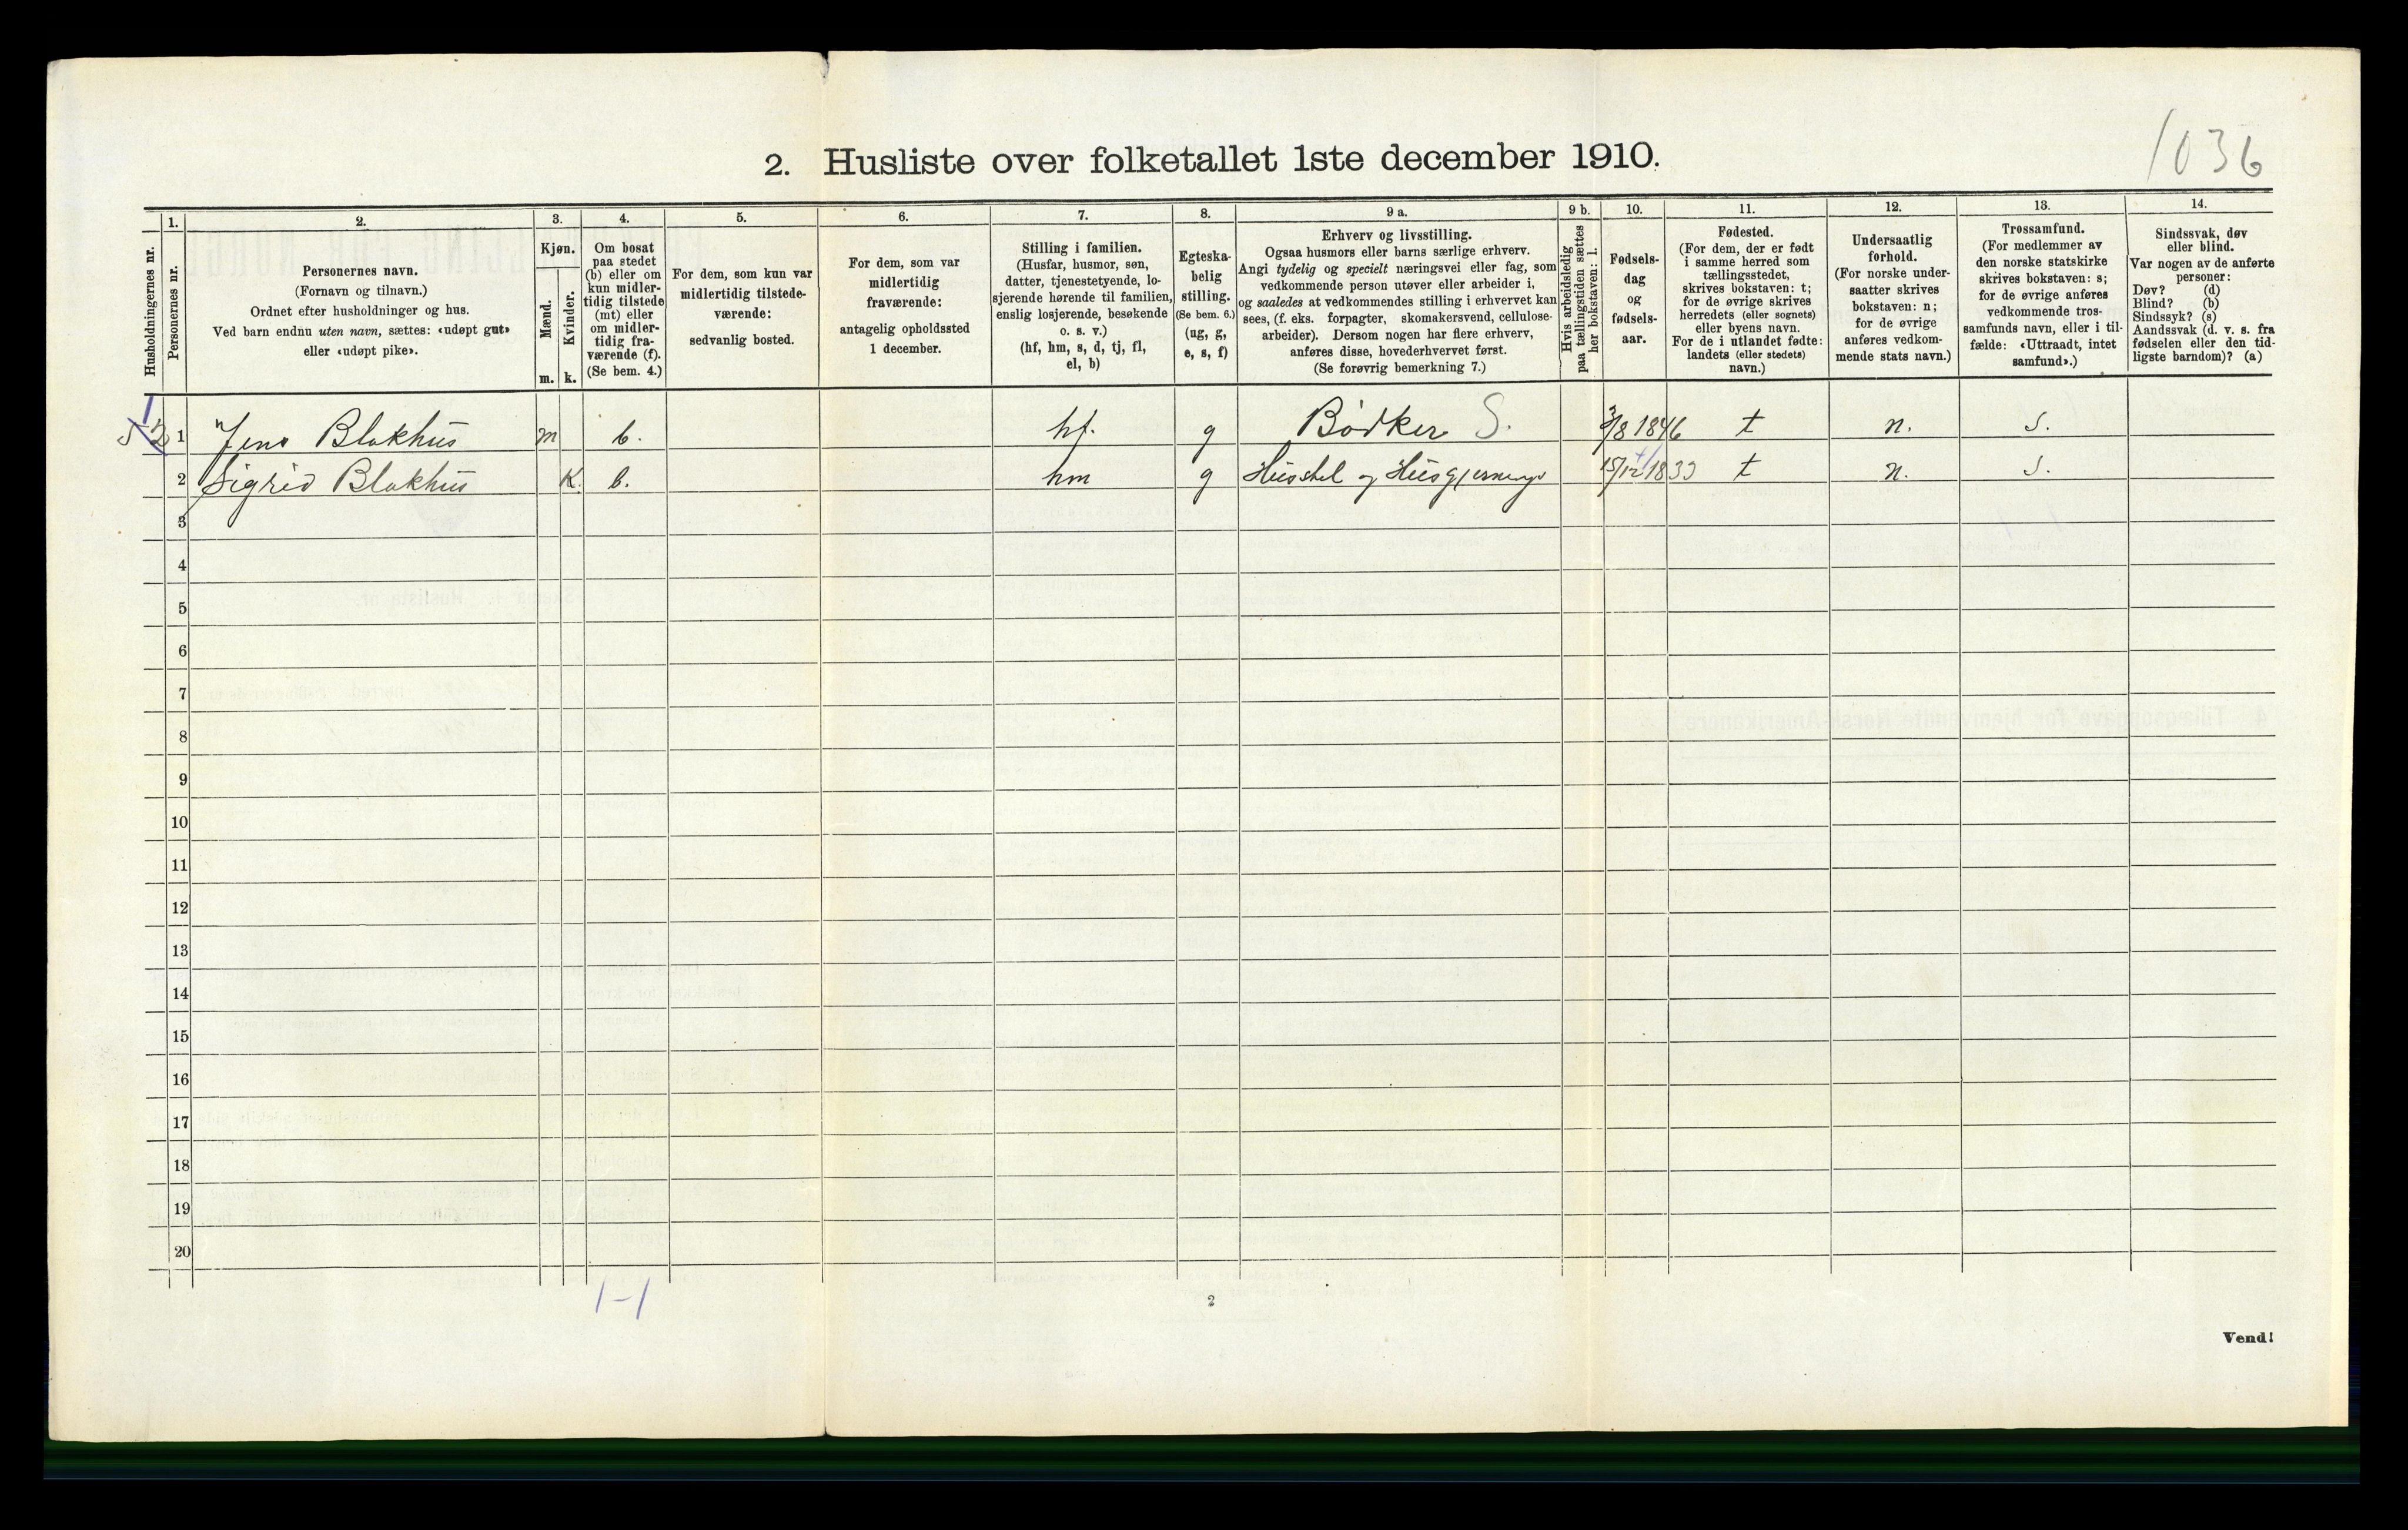 1036
2. Husliste over folketallet 1ste december 1910.
Husholdningernes nr.
1.
Personernes nr.
2.
Personernes navn.
(Fornavn og tilnavn.)
Ordnet efter husholdninger og hus.
Ved barn endnu uten navn, sættes: «udøpt gut»
eller «udøpt pike».
3.
Kjøn.
Mænd.
Kvinder.
m. k.
4.
Om bosat
paa stedet
(b) eller om
kun midler-
tidig tilstede
(mt) eller
om midler-
tidig fra-
værende (f).
(Se bem. 4.)
5.
For dem, som kun var
midlertidig tilstede-
værende:
sedvanlig bosted.
6.
For dem, som var
midlertidig
fraværende:
antagelig opholdssted
1 december.
7.
Stilling i familien.
(Husfar, husmor, søn,
datter, tjenestetyende, lo-
sjerende hørende til familien,
enslig losjerende, besøkende
o. s. v.)
(hf, hm, s, d, tj, fl,
el, b)
8.
Egteska-
belig
stilling.
(Se bem. 6.)
(ug, g,
e, s, f)
9 a.
Erhverv og livsstilling.
Ogsaa husmors eller barns særlige erhverv.
Angi tydelig og specielt næringsvei eller fag, som
vedkommende person utøver eller arbeider i,
og saaledes at vedkommendes stilling i erhvervet kan
sees, (f. eks. forpagter, skomakersvend, cellulose-
arbeider). Dersom nogen har flere erhverv,
anføres disse, hovederhvervet først.
(Se forøvrig bemerkning 7.)
9 b.
Hvis arbeidsledig
paa tællingstiden sættes
her bokstaven: l.
10.
Fødsels-
dag
og
fødsels-
aar.
11.
Fødested.
(For dem, der er født
i samme herred som
tællingsstedet,
skrives bokstaven: t;
for de øvrige skrives
herredets (eller sognets)
eller byens navn.
For de i utlandet fødte:
landets (eller stedets)
navn.)
12.
Undersaatlig
forhold.
(For norske under-
saatter skrives
bokstaven: n;
for de øvrige
anføres vedkom-
mende stats navn.)
13.
Trossamfund.
(For medlemmer av
den norske statskirke
skrives bokstaven: s;
for de øvrige anføres
vedkommende tros-
samfunds navn, eller i til-
fælde: «Uttraadt, intet
samfund».)
14.
Sindssvak, døv
eller blind.
Var nogen av de anførte
personer:
Døv? (d)
Blind? (b)
Sindssyk? (s)
Aandssvak (d. v. s. fra
fødselen eller den tid-
ligste barndom)? (a)
1 Jens Blokhus m b. hf. g Bødker S. 3/8 1846 t n. s.
2 Sigrid Blokhus K. b. hm g Husstel og Husgjerning 15/12 1833 t n. s.
3
4
5
6
7
8
9
10
11
12
13
14
15
16
17
18
19
20
1-1
2
Vend!